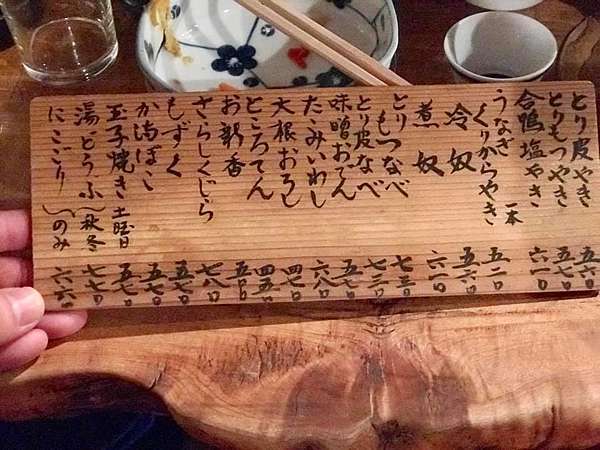 とり皮やき 五六〇
とりもつやき 五七〇
合鴨塩やき 六一〇
うなぎ
くりからやき 一本 五二〇
冷奴 五六〇
煮奴 六一〇
とりもつなべ 七三〇
とり皮なべ 七三〇
味噌おでん 五七〇
たたみいわし 六八〇
大根おろし 四七〇
ところてん 四五〇
お新香 五〇〇
さらしくじら 七八〇
もずく 五七〇
か満ぼこ 五七〇
玉子焼き 土曜日 五七〇
湯どうふ 秋冬 七七〇
にこごり のみ 六六〇